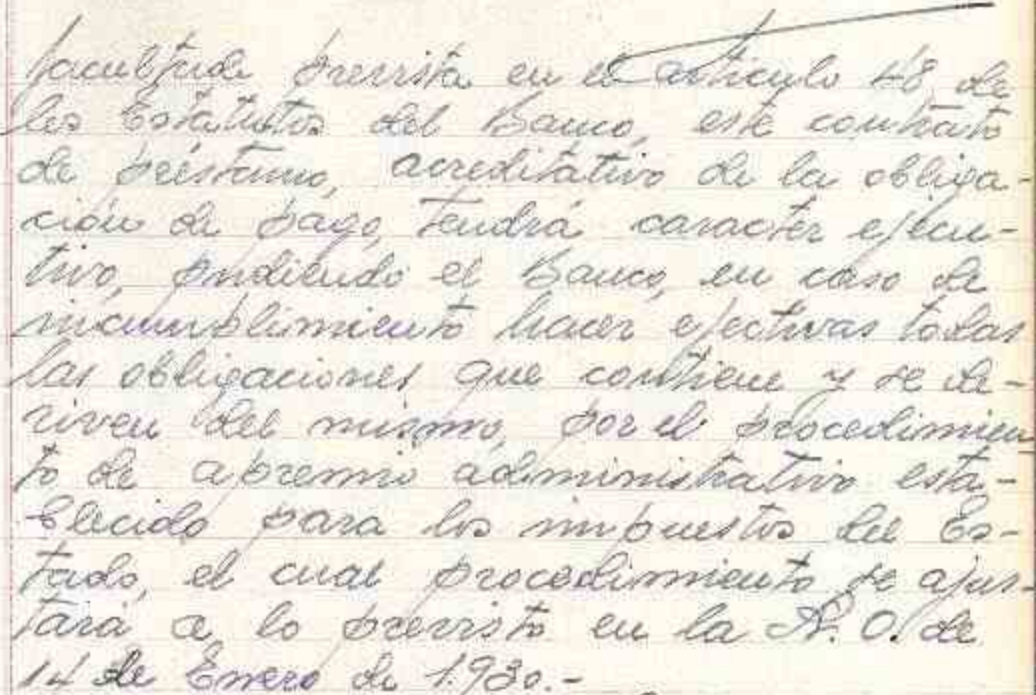 facultada prevista en el articulo 48 de
los Estatutos del Banco, este contrato
de préstamo, acreditativo de la obliga-
ción de pago, tendrá caracter ejecu-
tivo, pudiendo el Banco, en caso de
incumplimiento hacer efectivas todas
las obligaciones que contiene y se de-
riven del mismo, por el procedimien
to de apremio administrativo esta-
blecido para los impuestos del Es-
tado, el cual procedimiento se ajus-
tará a lo previsto en la R. O. de
14 de Enero de 1.930.-